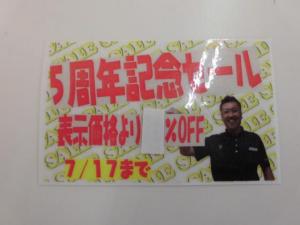 5周年記念セール
表示価格より %OFF
7/17まで
SALE SALE SALE